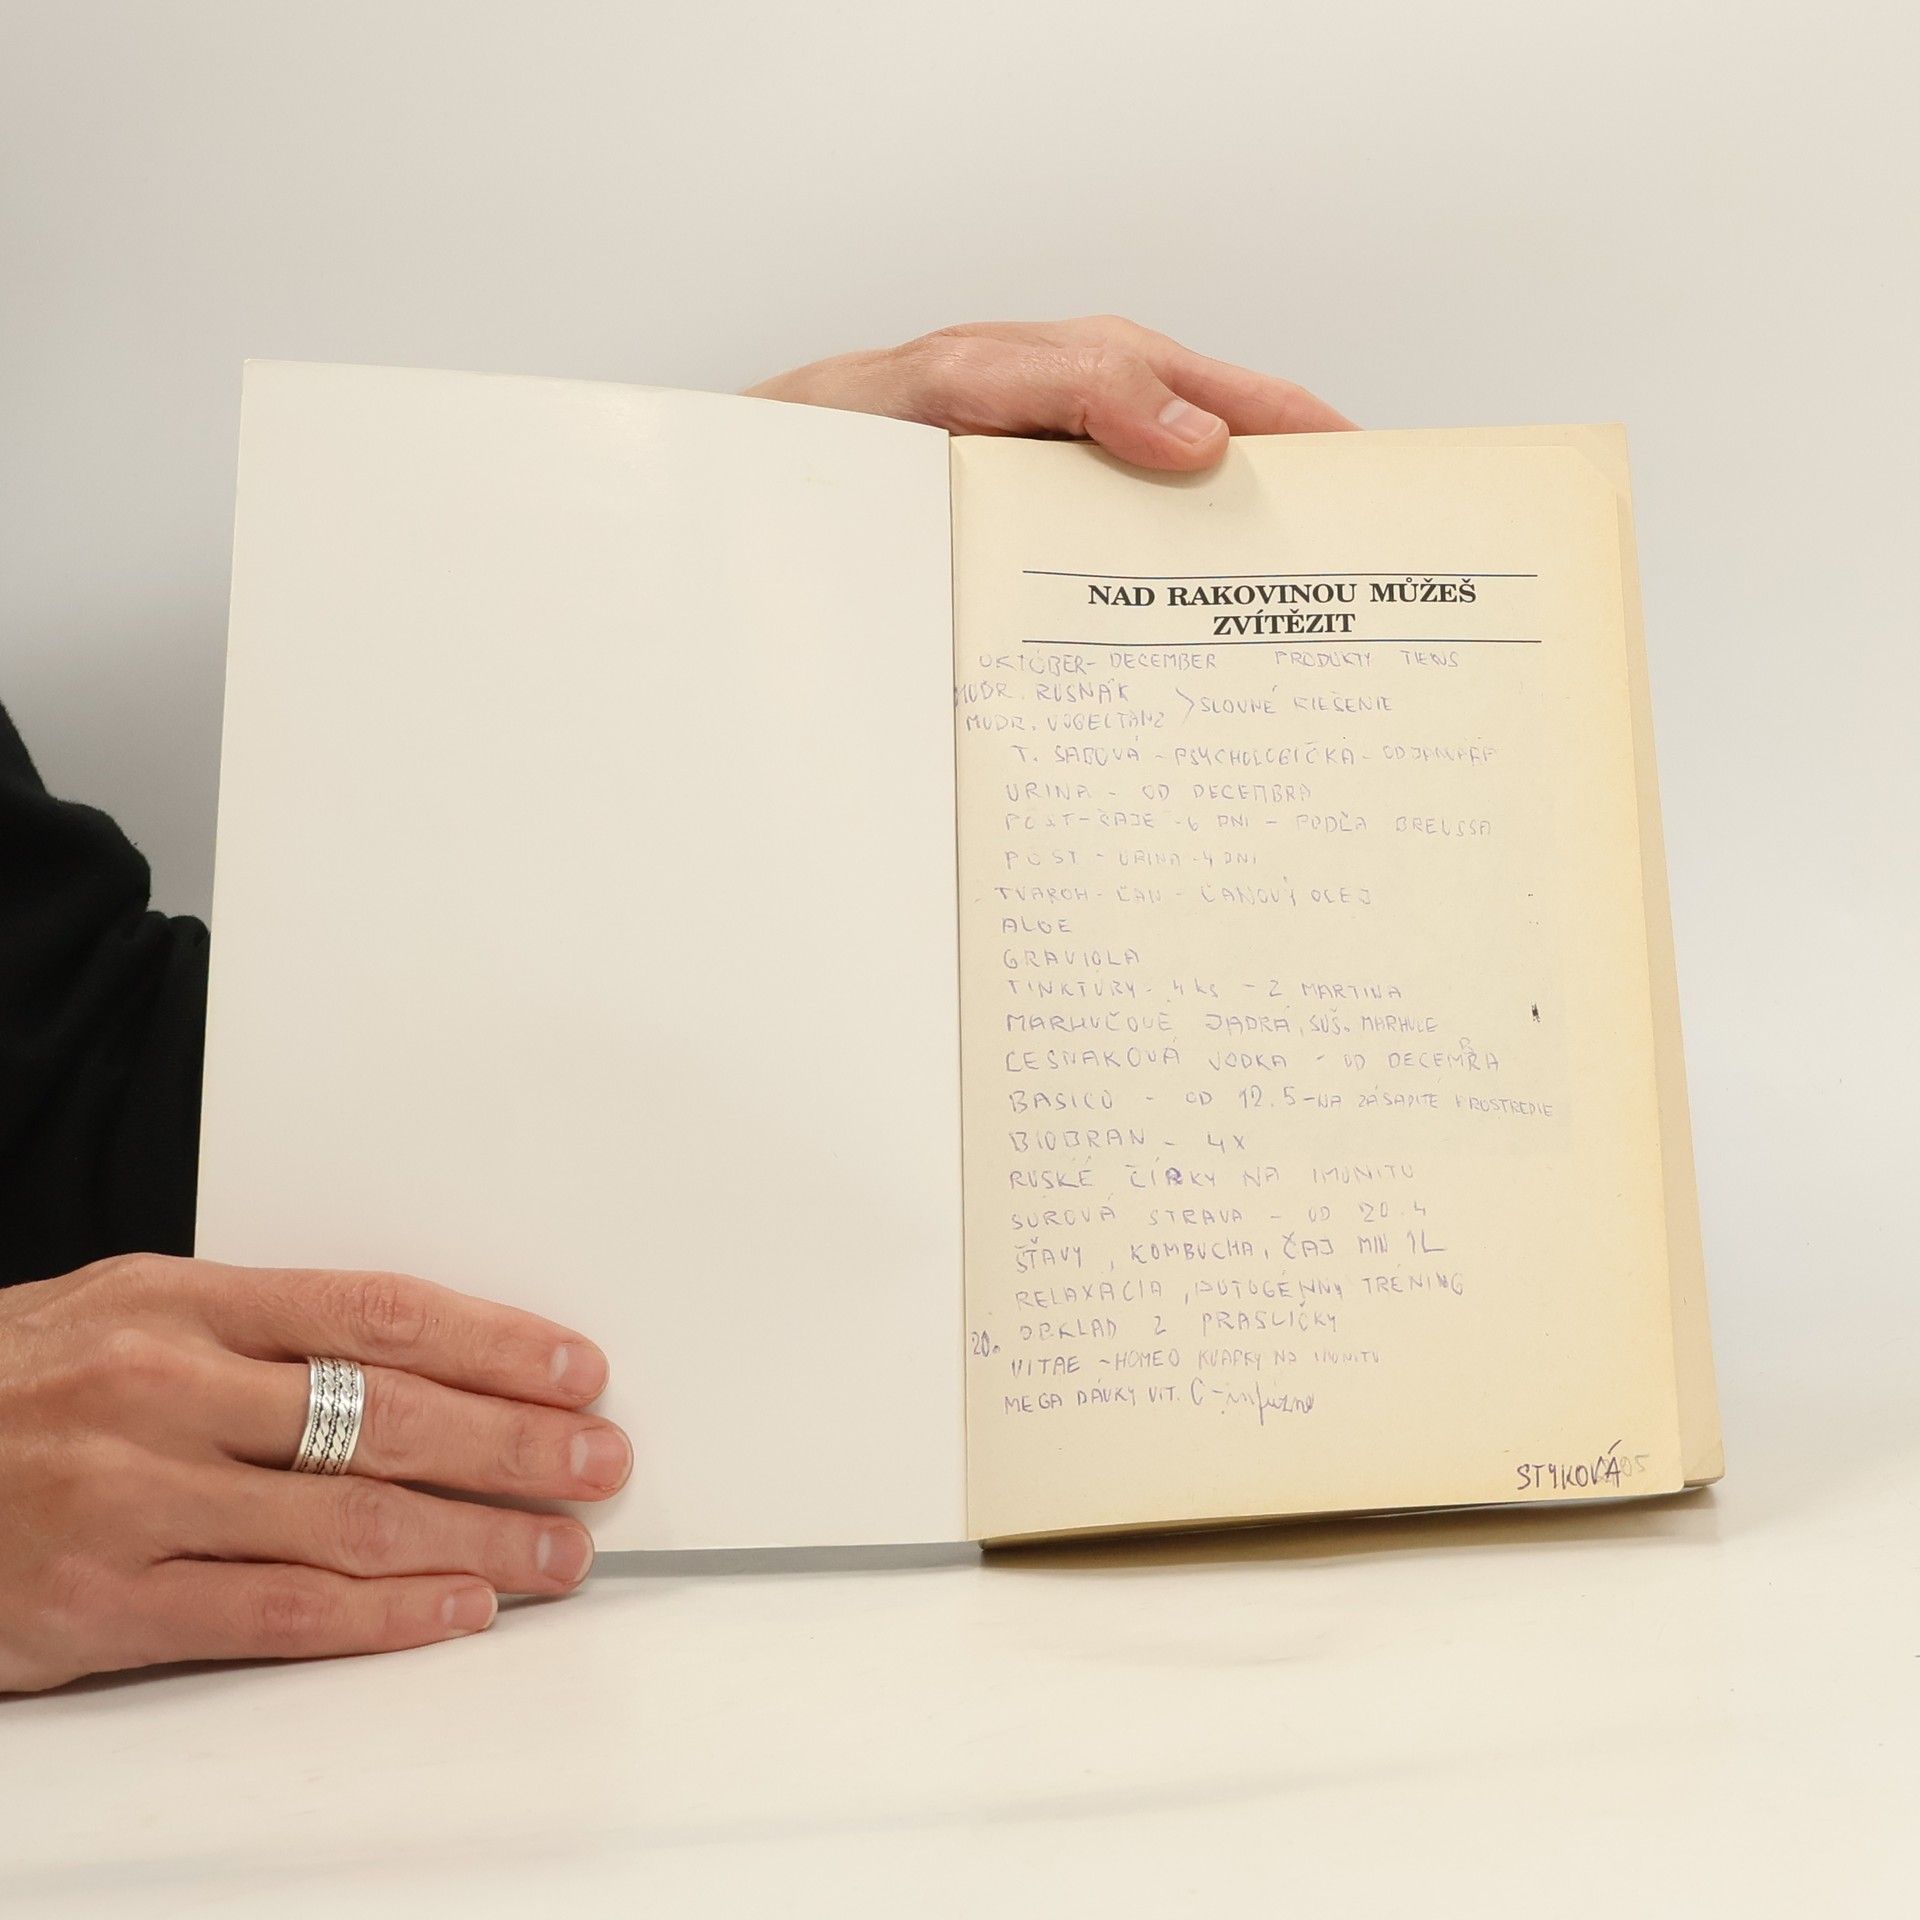 NAD RAKOVINOU MŮŽEŠ
ZVÍTĚZIT
OKTÓBER- DECEMBER PRODUKTY TIENS
MUDR. RUSNÁK
MUDR. VOGELTANZ >SLOVNÉ RIEŠENIE
T. SABOVÁ - PSYCHOLOGIČKA - OD JANUÁRA
URINA - OD DECEMBRA
POST-ČAJE -6 DNI - PODĽA BREUSSA
POST - URINA -4 DNI
TVAROH - ĽAN - ĽANOVÝ OLEJ
ALOE
GRAVIOLA
TINKTÚRY - 4 ks - Z MARTINA
MARHUČOVÉ JADRÁ, SUŠ. MARHULE
CESNAKOVÁ VODKA - OD DECEMBRA
BASICO - OD 12.5-NA ZÁSADITÉ PROSTREDIE
BIOBRAN - 4X
RUSKÉ ČÍPKY NA IMUNITU
SUROVÁ STRAVA - OD 20.4
ŠŤAVY, KOMBUCHA, ČAJ MIN 1L
RELAXÁCIA, AUTOGÉNNY TRÉNING
20. OBKLAD Z PRASLIČKY
VITAE -HOMEO KVAPKY NA IMUNITU
MEGA DÁVKY VIT. C -infúzne
STYKOVÁ